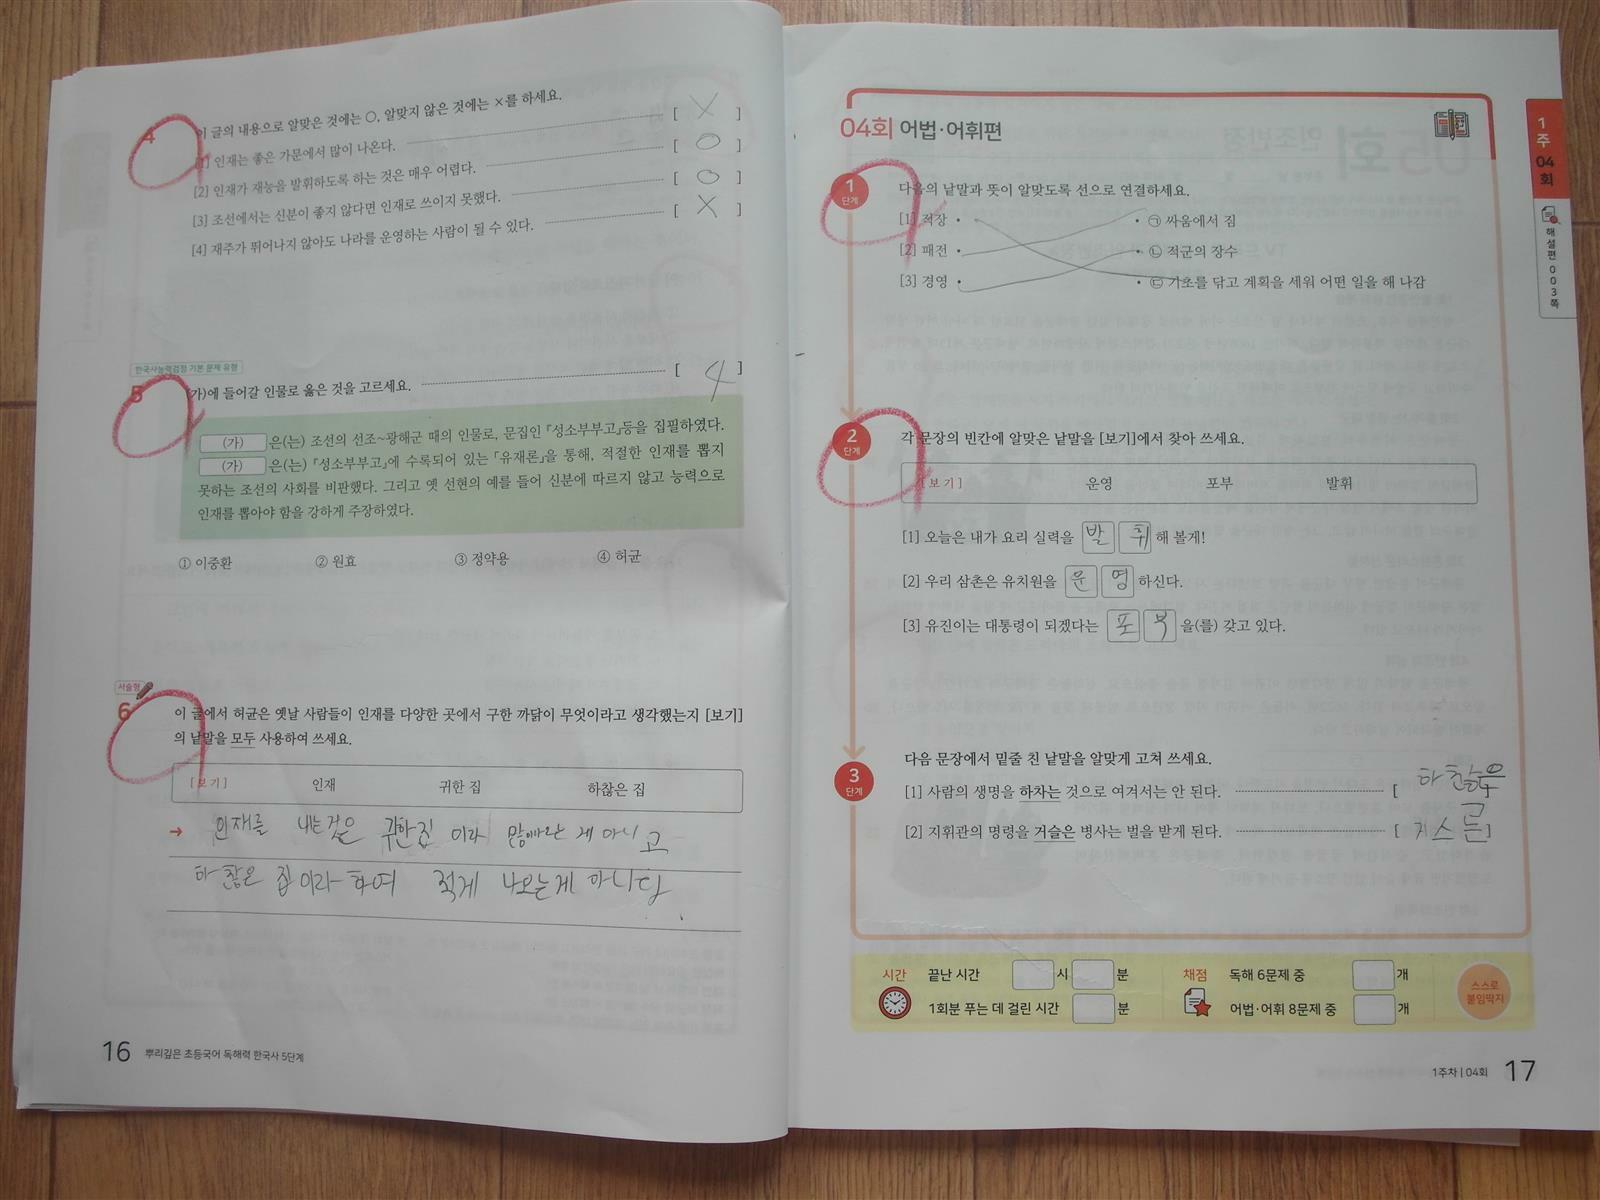 4 이 글의 내용으로 알맞은 것에는 ○, 알맞지 않은 것에는 ×를 하세요.
[1] 인재는 좋은 가문에서 많이 나온다. [ X ]
[2] 인재가 재능을 발휘하도록 하는 것은 매우 어렵다. [ ○ ]
[3] 조선에서는 신분이 좋지 않다면 인재로 쓰이지 못했다. [ ○ ]
[4] 재주가 뛰어나지 않아도 나라를 운영하는 사람이 될 수 있다. [ X ]
한국사능력검정 기본 문제 유형
5 (가)에 들어갈 인물로 옳은 것을 고르세요. [ 4 ]
(가) 은(는) 조선의 선조~광해군 때의 인물로, 문집인 『성소부부고』등을 집필하였다.
(가) 은(는) 『성소부부고』에 수록되어 있는 「유재론」을 통해, 적절한 인재를 뽑지
못하는 조선의 사회를 비판했다. 그리고 옛 선현의 예를 들어 신분에 따르지 않고 능력으로
인재를 뽑아야 함을 강하게 주장하였다.
① 이중환 ② 원효 ③ 정약용 ④ 허균
서술형
6 이 글에서 허균은 옛날 사람들이 인재를 다양한 곳에서 구한 까닭이 무엇이라고 생각했는지 [보기]
의 낱말을 모두 사용하여 쓰세요.
[보기] 인재 귀한 집 하찮은 집
→ 인재를 내는것은 귀한집 이라 많이나오는 게 아니고
하찮은 집이라하여 적게 나오는게 아니다.
16 뿌리깊은 초등국어 독해력 한국사 5단계
04회 어법·어휘편
1단계 다음의 낱말과 뜻이 알맞도록 선으로 연결하세요.
[1] 적장 • • ㉠ 싸움에서 짐
[2] 패전 • • ㉡ 적군의 장수
[3] 경영 • • ㉢ 기초를 닦고 계획을 세워 어떤 일을 해 나감
2단계 각 문장의 빈칸에 알맞은 낱말을 [보기]에서 찾아 쓰세요.
[보기] 운영 포부 발휘
[1] 오늘은 내가 요리 실력을 발휘 해 볼게!
[2] 우리 삼촌은 유치원을 운영 하신다.
[3] 유진이는 대통령이 되겠다는 포부 을(를) 갖고 있다.
3단계 다음 문장에서 밑줄 친 낱말을 알맞게 고쳐 쓰세요.
[1] 사람의 생명을 하차는 것으로 여겨서는 안 된다. [ 하찮은
[2] 지휘관의 명령을 거슬은 병사는 벌을 받게 된다. [ 거스른 ]
시간 끝난 시간 시 분 채점 독해 6문제 중 개 스스로
1회분 푸는 데 걸린 시간 분 어법·어휘 8문제 중 개 붙임딱지
1주차 | 04회 17
1주 04회
해설편 003쪽